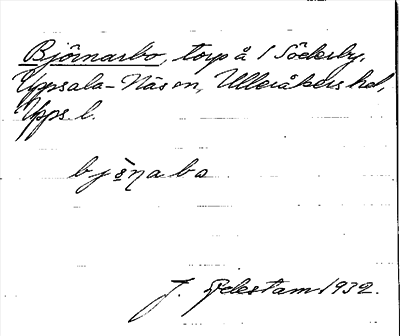 Björnarbo, torp å 1 Söderby,
Uppsala-Näs sn, Ulleråkers hd,
Upps. l.
bjö̱ɳabo
J. Sahlström 1932.